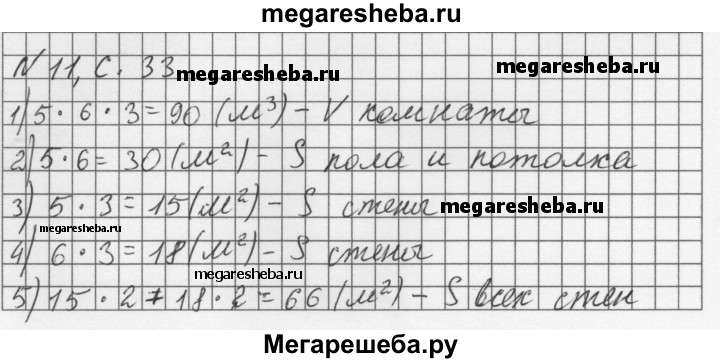 megaresheba.ru
N 11, с. 33
megaresheba.ru
megaresheba.ru
1) 5 · 6 · 3 = 90 (м³) – V комнаты
2) 5 · 6 = 30 (м²) – S пола и потолка
3) 5 · 3 = 15 (м²) – S стены
megaresheba.ru
megaresheba.ru
4) 6 · 3 = 18 (м²) – S стены
megaresheba.ru
5) 15 · 2 + 18 · 2 = 66 (м²) – S всех стен
Мегарешеба.ру